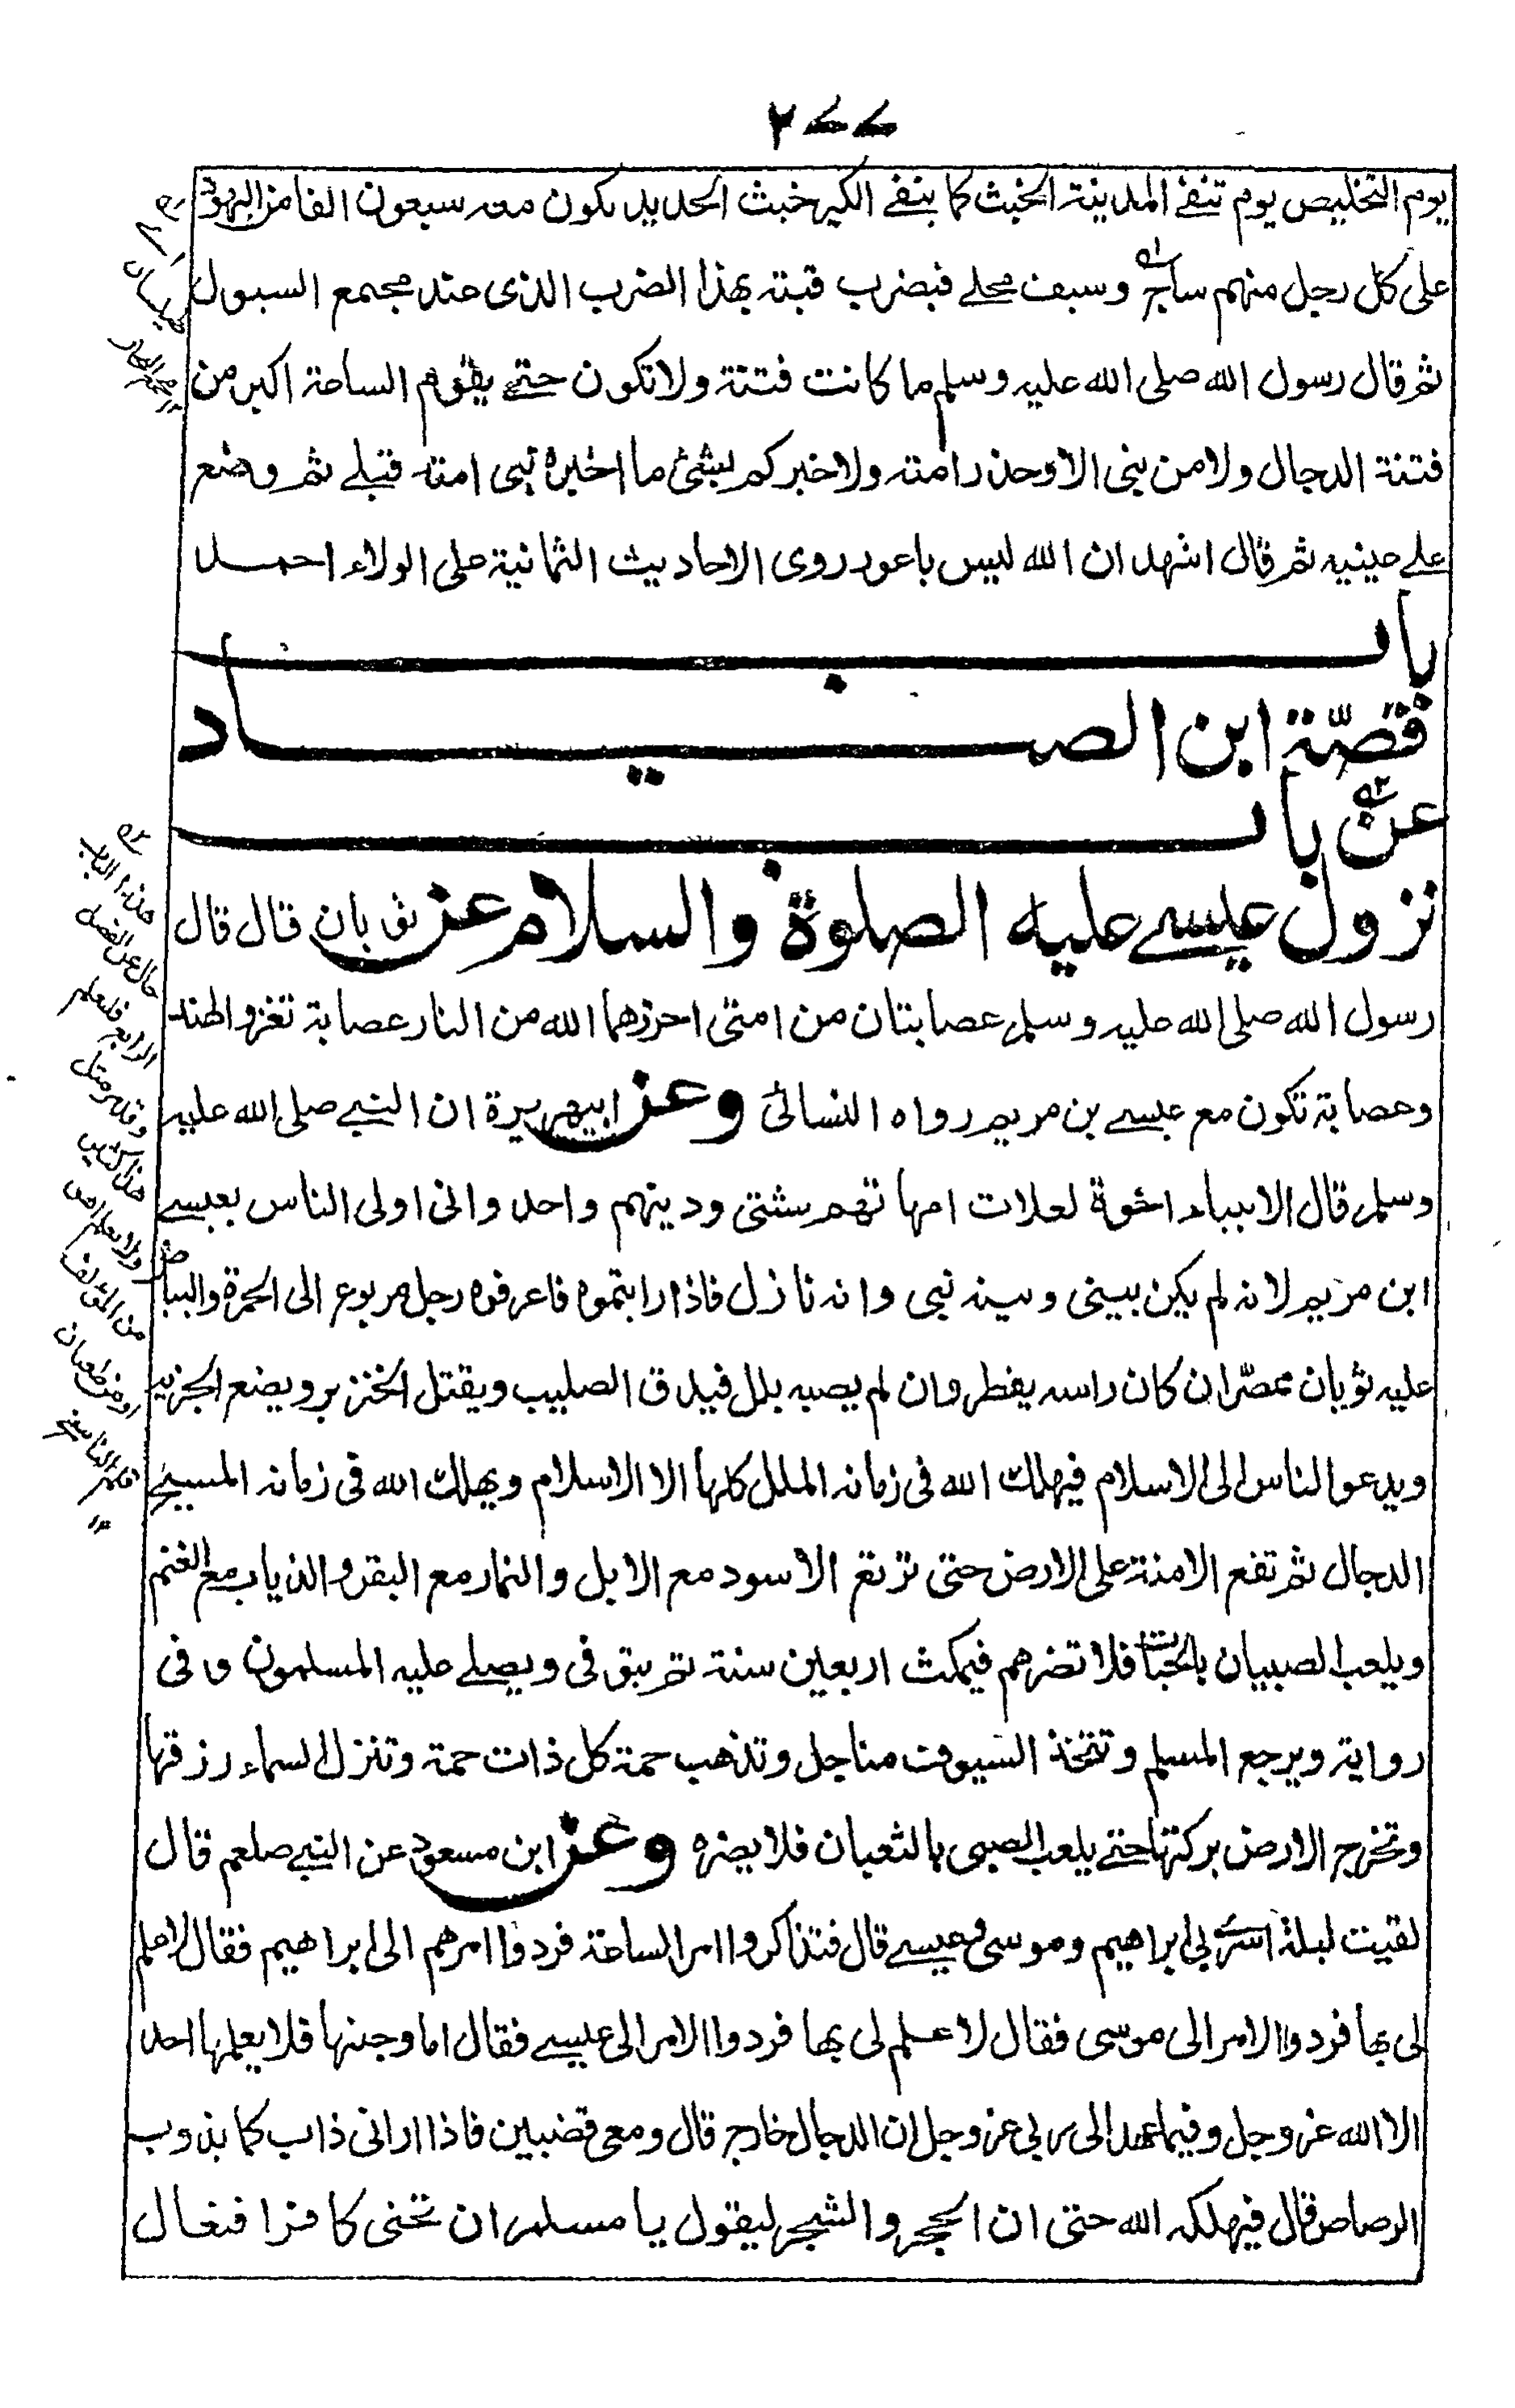 ٢٧٧
يوم التخليص يوم تنفے المدينة الخبث كما ينفے الكير خبث الحديد يكون معه سبعون الفا من اليهود
على كل رجل منهم ساج وسيف محلے فيضرب قبته بهذا الضرب الذى عند مجتمع السيول
ثم قال رسول الله صلى الله عليه وسلم ما كانت فتنة ولا تكون حتے يقوم الساعة اكبر من
فتنة الدجال ولا من نبى الا وحذر امته ولاخبركم بشئ ما اخبره نبى امته قبلے ثم وضع
علے عينيه ثم قال اشهد ان الله ليس باعور روى الاحاديث الثمانية على الولاء احمد
باب
قصّة ابن الصياد
عن باب
نزول عيسے عليه الصلوة والسلام عن ثوبان قال قال
رسول الله صلى الله عليه وسلم عصابتان من امتى احرزهما الله من النار عصابة تغزو الهند
وعصابة تكون مع عيسے بن مريم رواه النسائى وعن ابيهريرة ان النبے صلى الله عليه
وسلم قال الانبياء اخوة لعلات امهاتهم شتى ودينهم واحد وانى اولى الناس بعيسے
ابن مريم لانه لم يكن بينى وبينه نبى وانه نازل فاذا رايتموه فاعرفوه رجل مربوع الى الحمرة والبياض
عليه ثوبان ممصّران كان راسه يقطر وان لم يصبه بلل فيدق الصليب ويقتل الخنزير ويضع الجزية
ويدعو الناس الى الاسلام فيهلك الله فى زمانه الملل كلها الا الاسلام ويهلك الله فى زمانه المسيح
الدجال ثم تقع الامنة على الارض حتى ترتع الاسود مع الابل والنمار مع البقر والذياب مع الغنم
ويلعب الصبيان بالحيات فلا تضرهم فيمكث اربعين سنة ثم يتوفى ويصلے عليه المسلمون وفى
رواية ويرجع المسلم وتتخذ السيوف مناجل وتذهب حمة كل ذات حمة وتنزل السماء رزقها
وتخرج الارض بركتها حتے يلعب الصبى بالثعبان فلا يضره وعن ابن مسعود عن النبے صلعم قال
لقيت ليلة اسرے بى ابراهيم وموسى وعيسے قال فتذاكروا امر الساعة فردوا امرهم الى ابراهيم فقال لا علم
لى بها فردوا الامر الى موسى فقال لا علم لى بها فردوا الامر الى عيسے فقال اما وجبتها فلا يعلمها احد
الا الله عز وجل وفيما عهد الى ربى عز وجل ان الدجال خارج قال ومعى قضيبين فاذا ارانى ذاب كما يذوب
الرصاص قال فيهلكه الله حتى ان الحجر والشجر ليقول يا مسلم ان تحتى كافرا فتعال
هذا الباب
خال عن الفصل
الرابع فليعلم
وقد مثل
هذا كثير
ولا يعلم اهو
من المؤلف
او من طغيان
قلم الناسخ
١٢